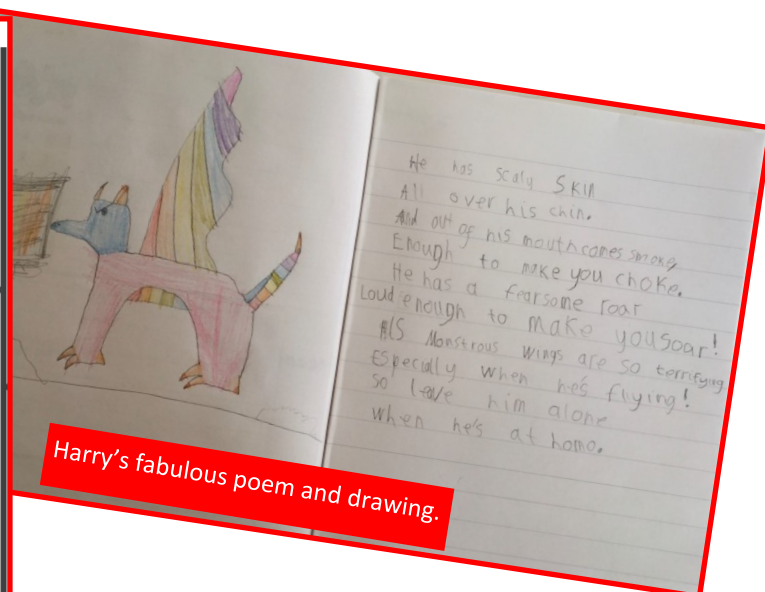 He has scaly SKIN
All over his chin.
And out of his mouth comes smoke,
Enough to make you choke.
He has a fearsome roar
Loud enough to make you soar!
HIS Monstrous wings are so terrifying
Especially when he's flying!
So leave him alone
when he's at home.
Harry's fabulous poem and drawing.